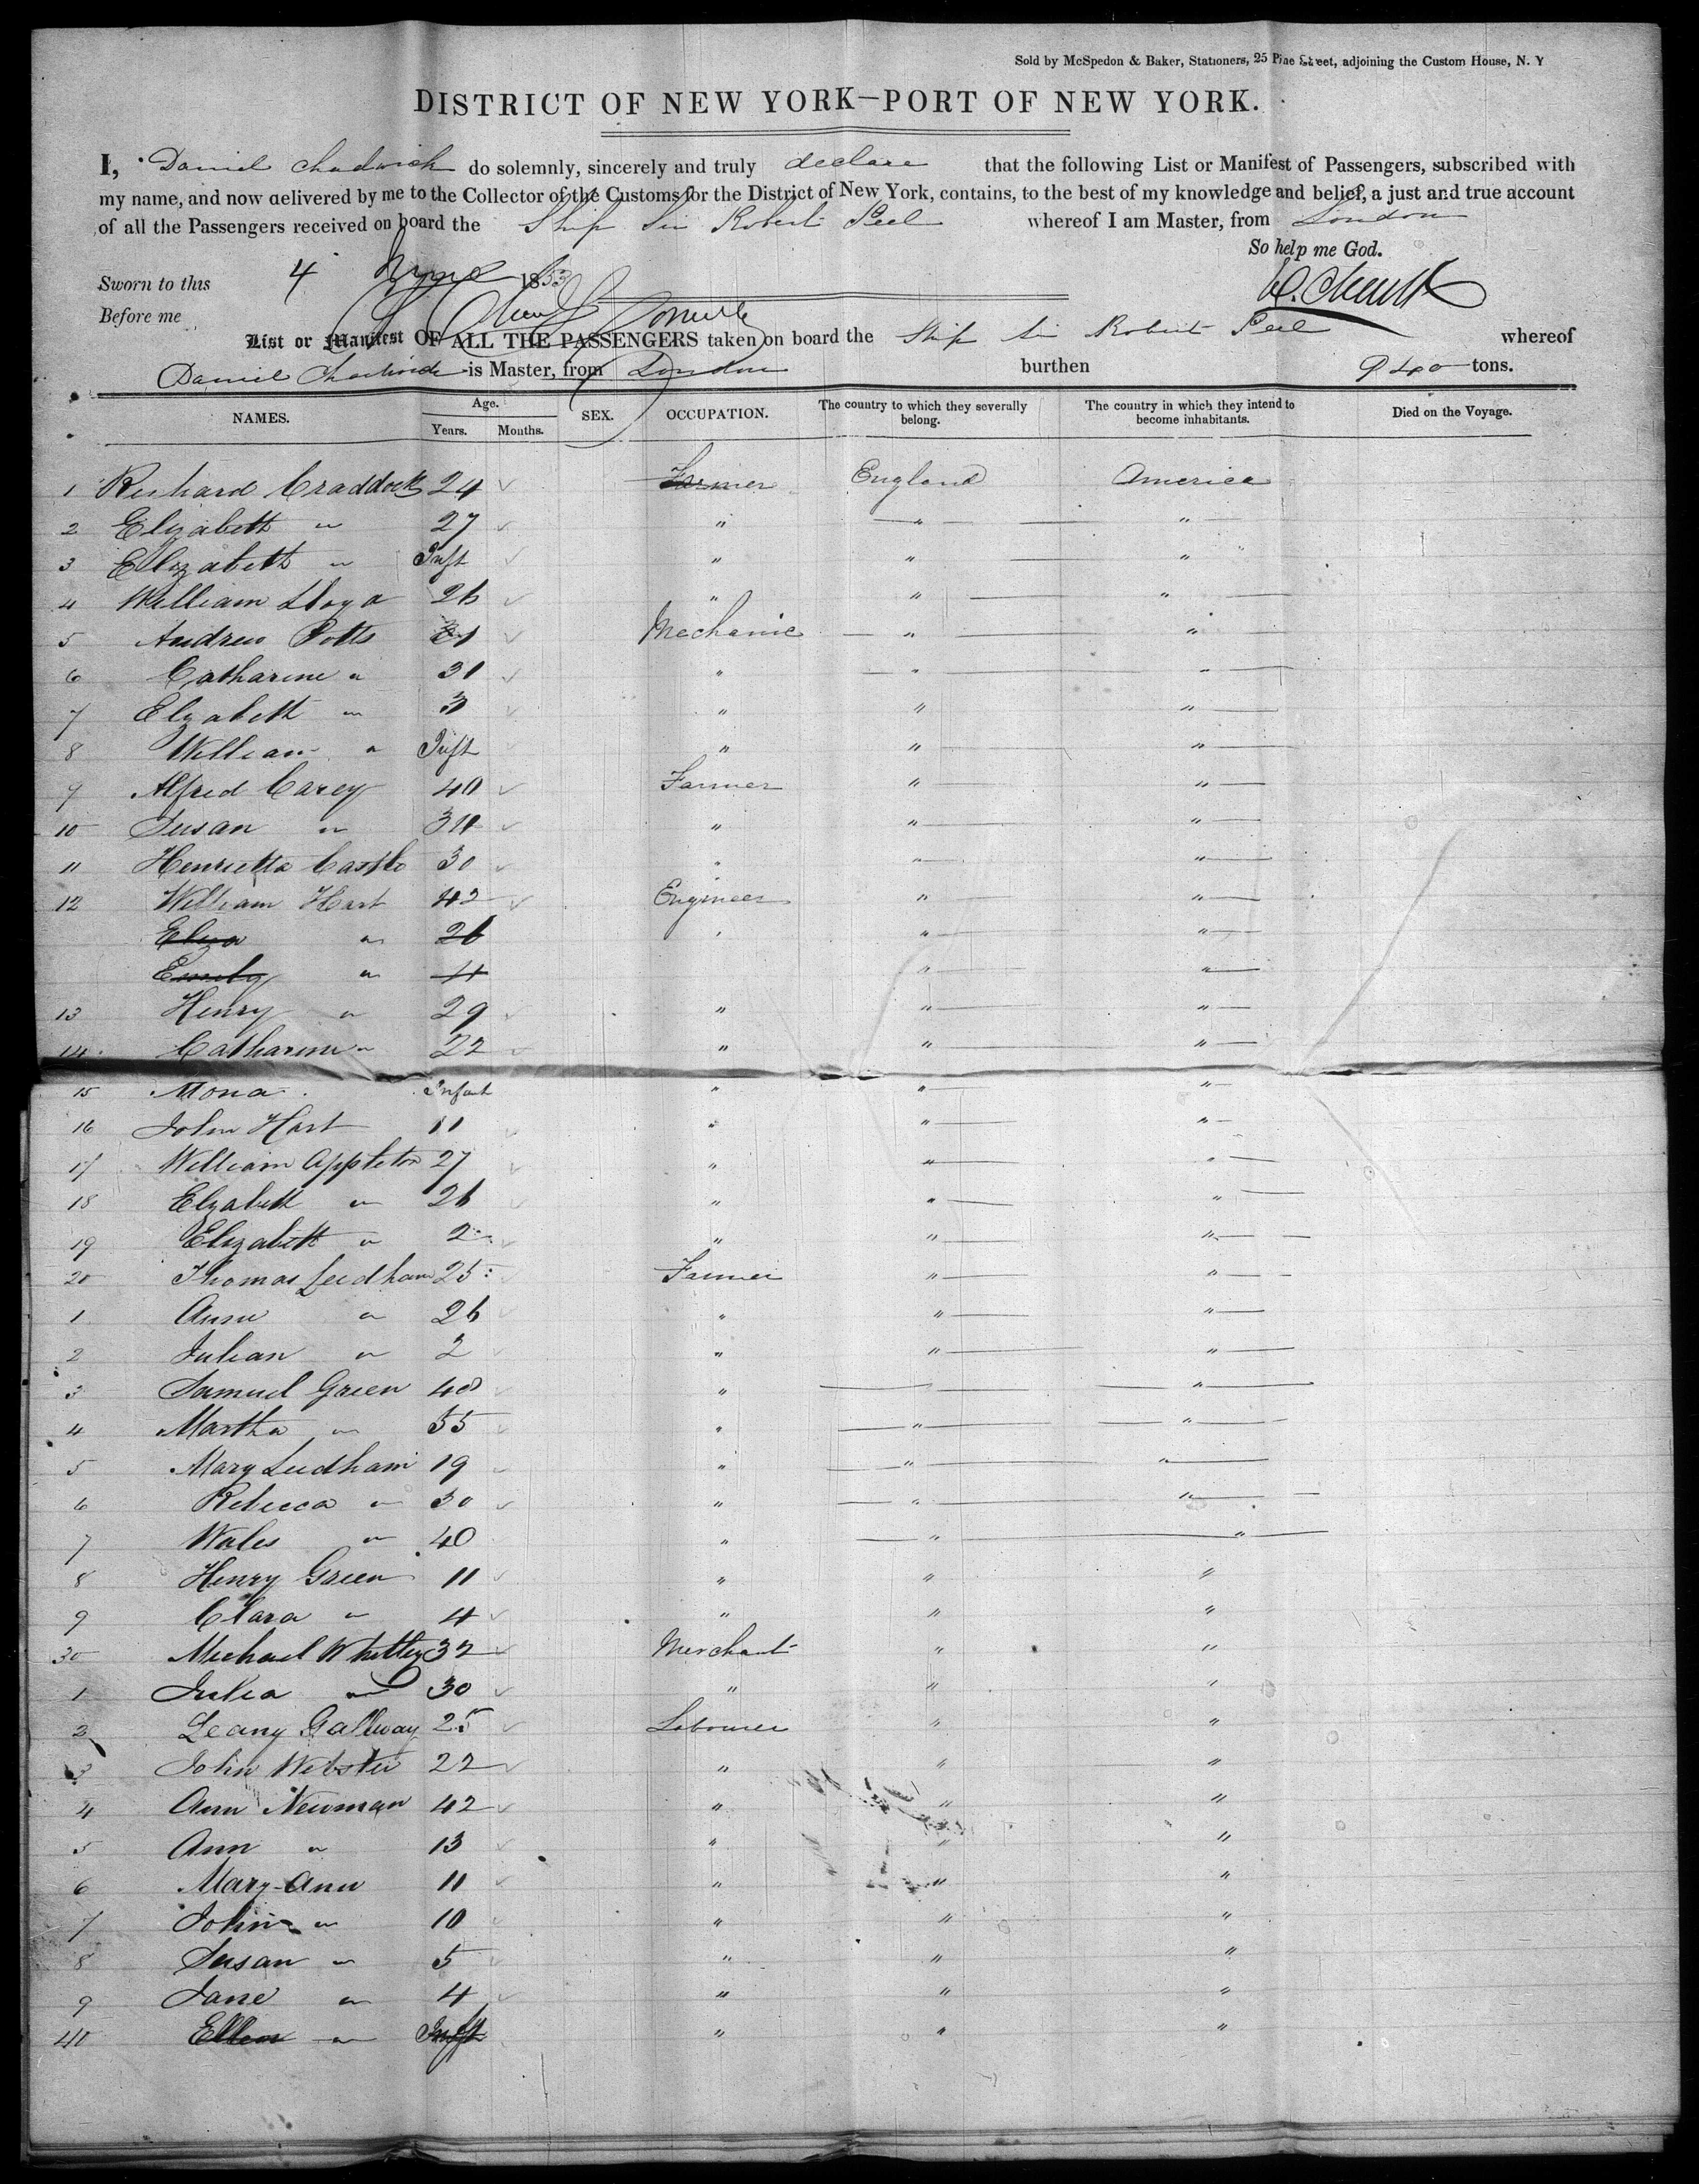 Sold by McSpedon & Baker, Stationers, 25 Pine Street, adjoining the Custom House, N. Y
DISTRICT OF NEW YORK—PORT OF NEW YORK.
I, Daniel Chadwick do solemnly, sincerely and truly declare that the following List or Manifest of Passengers, subscribed with
my name, and now delivered by me to the Collector of the Customs for the District of New York, contains, to the best of my knowledge and belief, a just and true account
of all the Passengers received on board the Ship Sir Robert Peel whereof I am Master, from London
So help me God.
Sworn to this 4 1853
Before me
List or Manifest OF ALL THE PASSENGERS taken on board the Ship Sir Robert Peel whereof
Daniel Chadwick is Master, from London burthen 940 tons.
NAMES. Age. Years. Months. SEX. OCCUPATION. The country to which they severally belong. The country in which they intend to become inhabitants. Died on the Voyage.
1 Richard Craddock 24 Farmer England America
2 Elizabeth " 27 " " "
3 Elizabeth " Inft " " "
4 William Lloyd 26 " " "
5 Andrew Potts Mechanic " "
6 Catharine " 31 " " "
7 Elizabeth " 3 " " "
8 William " Inft " " "
9 Alfred Carey 40 Farmer " "
10 Susan " " " "
11 Henrietta Castle 30 " " "
12 William Hart 42 Engineer " "
Eliza " 26 " " "
Emily " 4 " "
13 Henry " 29 " " "
14 Catharine " 22 " " "
15 Mona Infant " " "
16 John Hart 11 " " "
17 William Appleton 27 " " "
18 Elizabeth " 26 " " "
19 Elizabeth " 2 " " "
20 Thomas Leedham 25 Farmer " "
1 Anne " 26 " " "
2 Julian " 2 " " "
3 Samuel Green 48 " " "
4 Martha " 55 " " "
5 Mary Leedham 19 " " "
6 Rebecca " 30 " " "
7 Wales " 40 " " "
8 Henry Green 11 " " "
9 Clara " 4 " " "
30 Michael Whittey 32 Merchant " "
1 Julia " 30 " " "
2 Leany Gallway 25 Labourer " "
3 John Webster 22 " " "
4 Ann Newman 42 " " "
5 Ann " 13 " " "
6 Mary Ann 11 " " "
7 John " 10 " " "
8 Susan " 5 " " "
9 Jane " 4 " " "
40 Ellen " Inft " " "